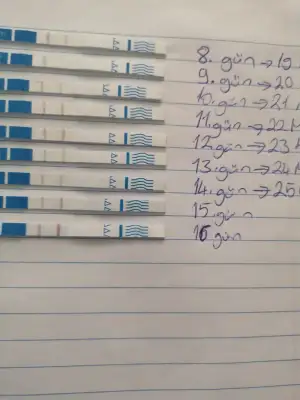 8. gün → 19
9. gün → 20
10. gün → 21
11. gün → 22 M
12. gün → 23
13. gün → 24 M
14. gün → 25
15. gün
16 gün